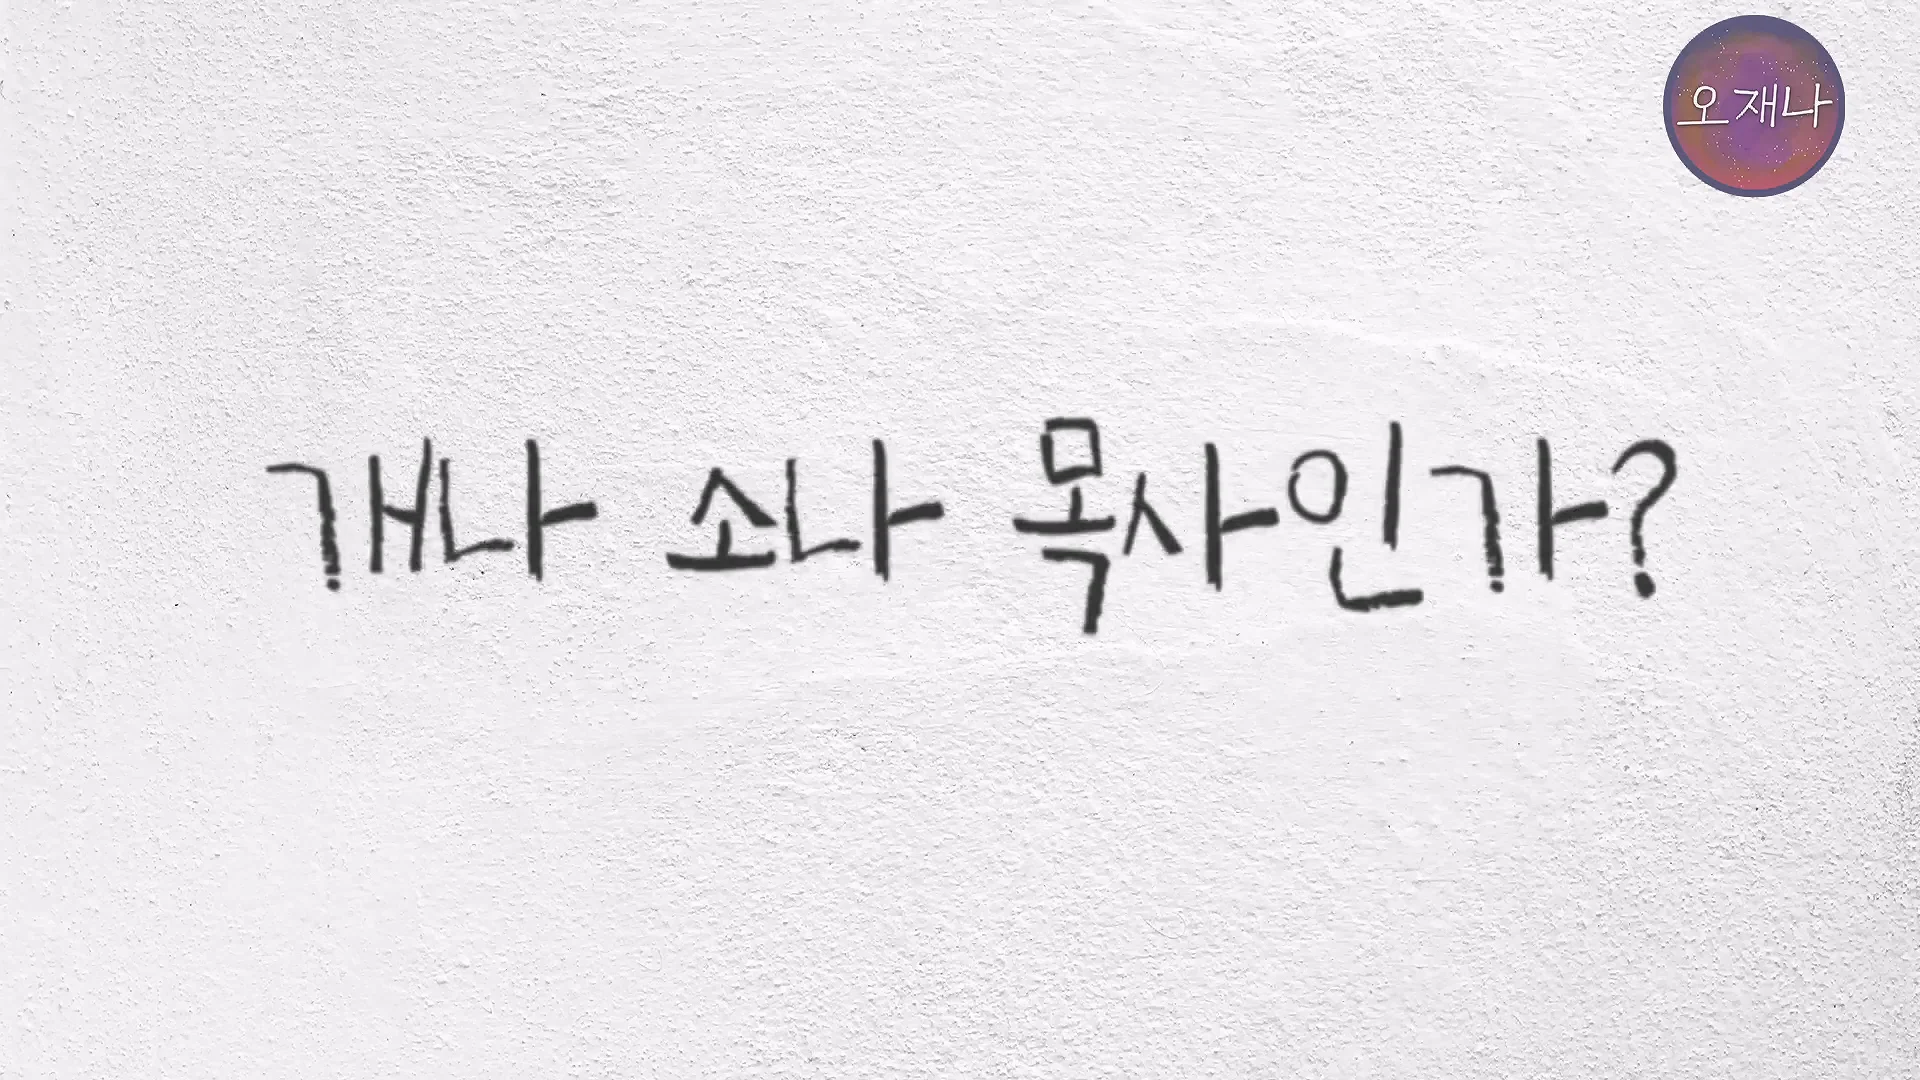 오재나
개나 소나 목사인가?